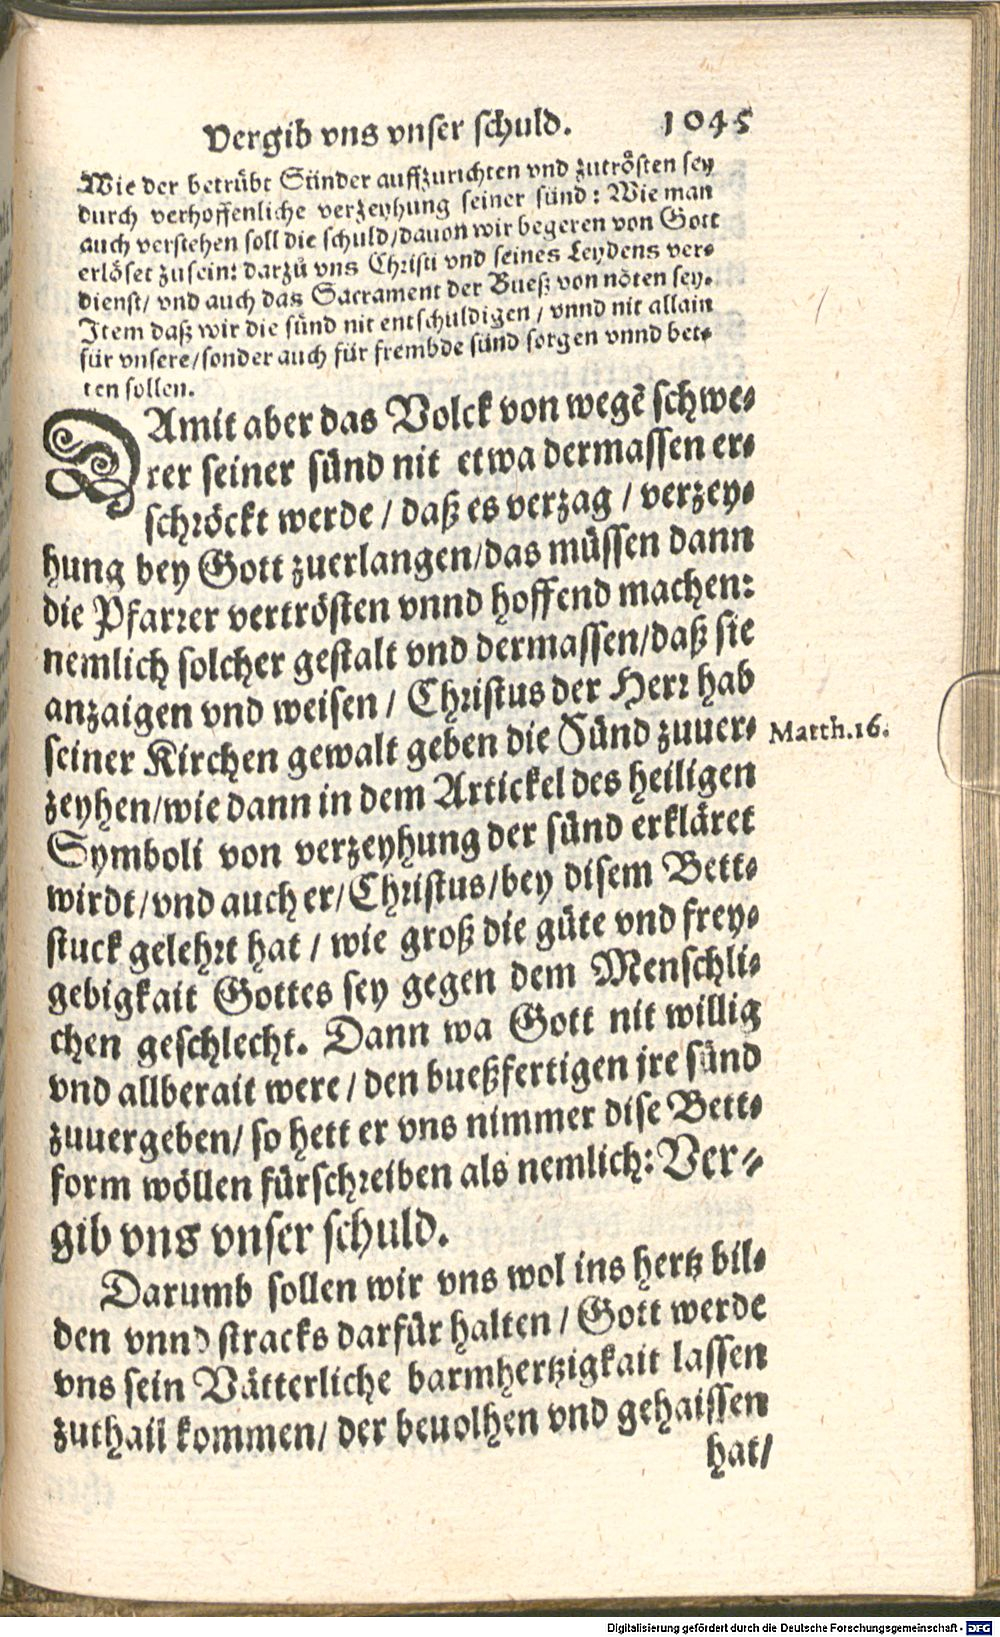 Vergib vns vnser schuld. 1045
Wie der betrübt Sünder auffzurichten vnd zutrösten sey
durch verhoffenliche verzeyhung seiner sünd: Wie man
auch verstehen soll die schuld/dauon wir begeren von Gott
erlöset zusein: darzů vns Christi vnd seines Leydens ver-
dienst/ vnd auch das Sacrament der Bueß von nöten sey.
Item daß wir die sünd nit entschuldigen/ vnnd nit allain
für vnsere/sonder auch für frembde sünd sorgen vnnd bet-
ten sollen.
DAmit aber das Volck von wegē schwe-
rer seiner sünd nit etwa dermassen er-
schröckt werde / daß es verzag / verzey-
hung bey Gott zuerlangen/das müssen dann
die Pfarrer vertrösten vnnd hoffend machen:
nemlich solcher gestalt vnd dermassen/daß sie
anzaigen vnd weisen / Christus der Herr hab
seiner Kirchen gewalt geben die Sünd zuuer-
Matth.16.
zeyhen/wie dann in dem Artickel des heiligen
Symboli von verzeyhung der sünd erkläret
wirdt/vnd auch er/Christus/bey disem Bett-
stuck gelehrt hat / wie groß die güte vnd frey-
gebigkait Gottes sey gegen dem Menschli-
chen geschlecht. Dann wa Gott nit willig
vnd allberait were/ den bueßfertigen jre sünd
zuuergeben/ so hett er vns nimmer dise Bett-
form wöllen fürschreiben als nemlich: Ver-
gib vns vnser schuld.
Darumb sollen wir vns wol ins hertz bil-
den vnnd stracks darfür halten / Gott werde
vns sein Vätterliche barmhertzigkait lassen
zuthail kommen/ der beuolhen vnd gehaissen
hat/
Digitalisierung gefördert durch die Deutsche Forschungsgemeinschaft - DFG